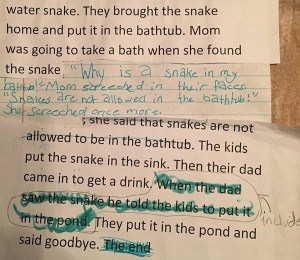 water snake. They brought the snake
home and put it in the bathtub. Mom
was going to take a bath when she found
the snake "Why is a snake in my
bathtub!" Mom screeched in their faces.
"Snakes are not allowed in the bathtub!"
She screeched once more.
; she said that snakes are not
allowed to be in the bathtub. The kids
put the snake in the sink. Then their dad
came in to get a drink. When the dad
saw the snake he told the kids to put it
in the pond. They put it in the pond and
include
said goodbye. The end